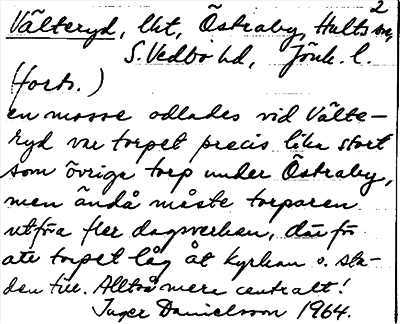 2
Välteryd, lht, Östraby, Hults sn,
S. Vedbo hd, Jönk. l.
(forts.)
en mosse odlades vid Välte-
ryd var torpet precis lika stort
som övriga torp under Östraby,
men ändå måste torparen
utföra fler dagsverken, därför
att torpet låg åt kyrkan o. sta-
den till. Alltså mera centralt!
Inger Danielsson 1964.